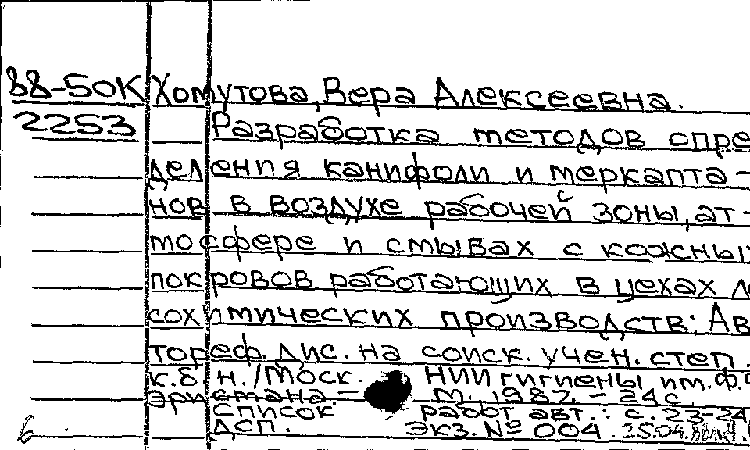 88-50К Хомутова, Вера Алексеевна.
2253 Разработка методов опре
деления канифоли и меркапта-
нов в воздухе рабочей зоны, ат-
мосфере и смывах с кожных
покровов работающих в цехах л
сохимических производств: Ав
тореф. дис. на соиск. учен. степ.
к.б.н. /Моск. НИИ гигиены им. Ф.Ф
Эрисмана - М. 1987. - 24с.
Список работ авт.: с. 23-24
ДСП. Экз. № 004.